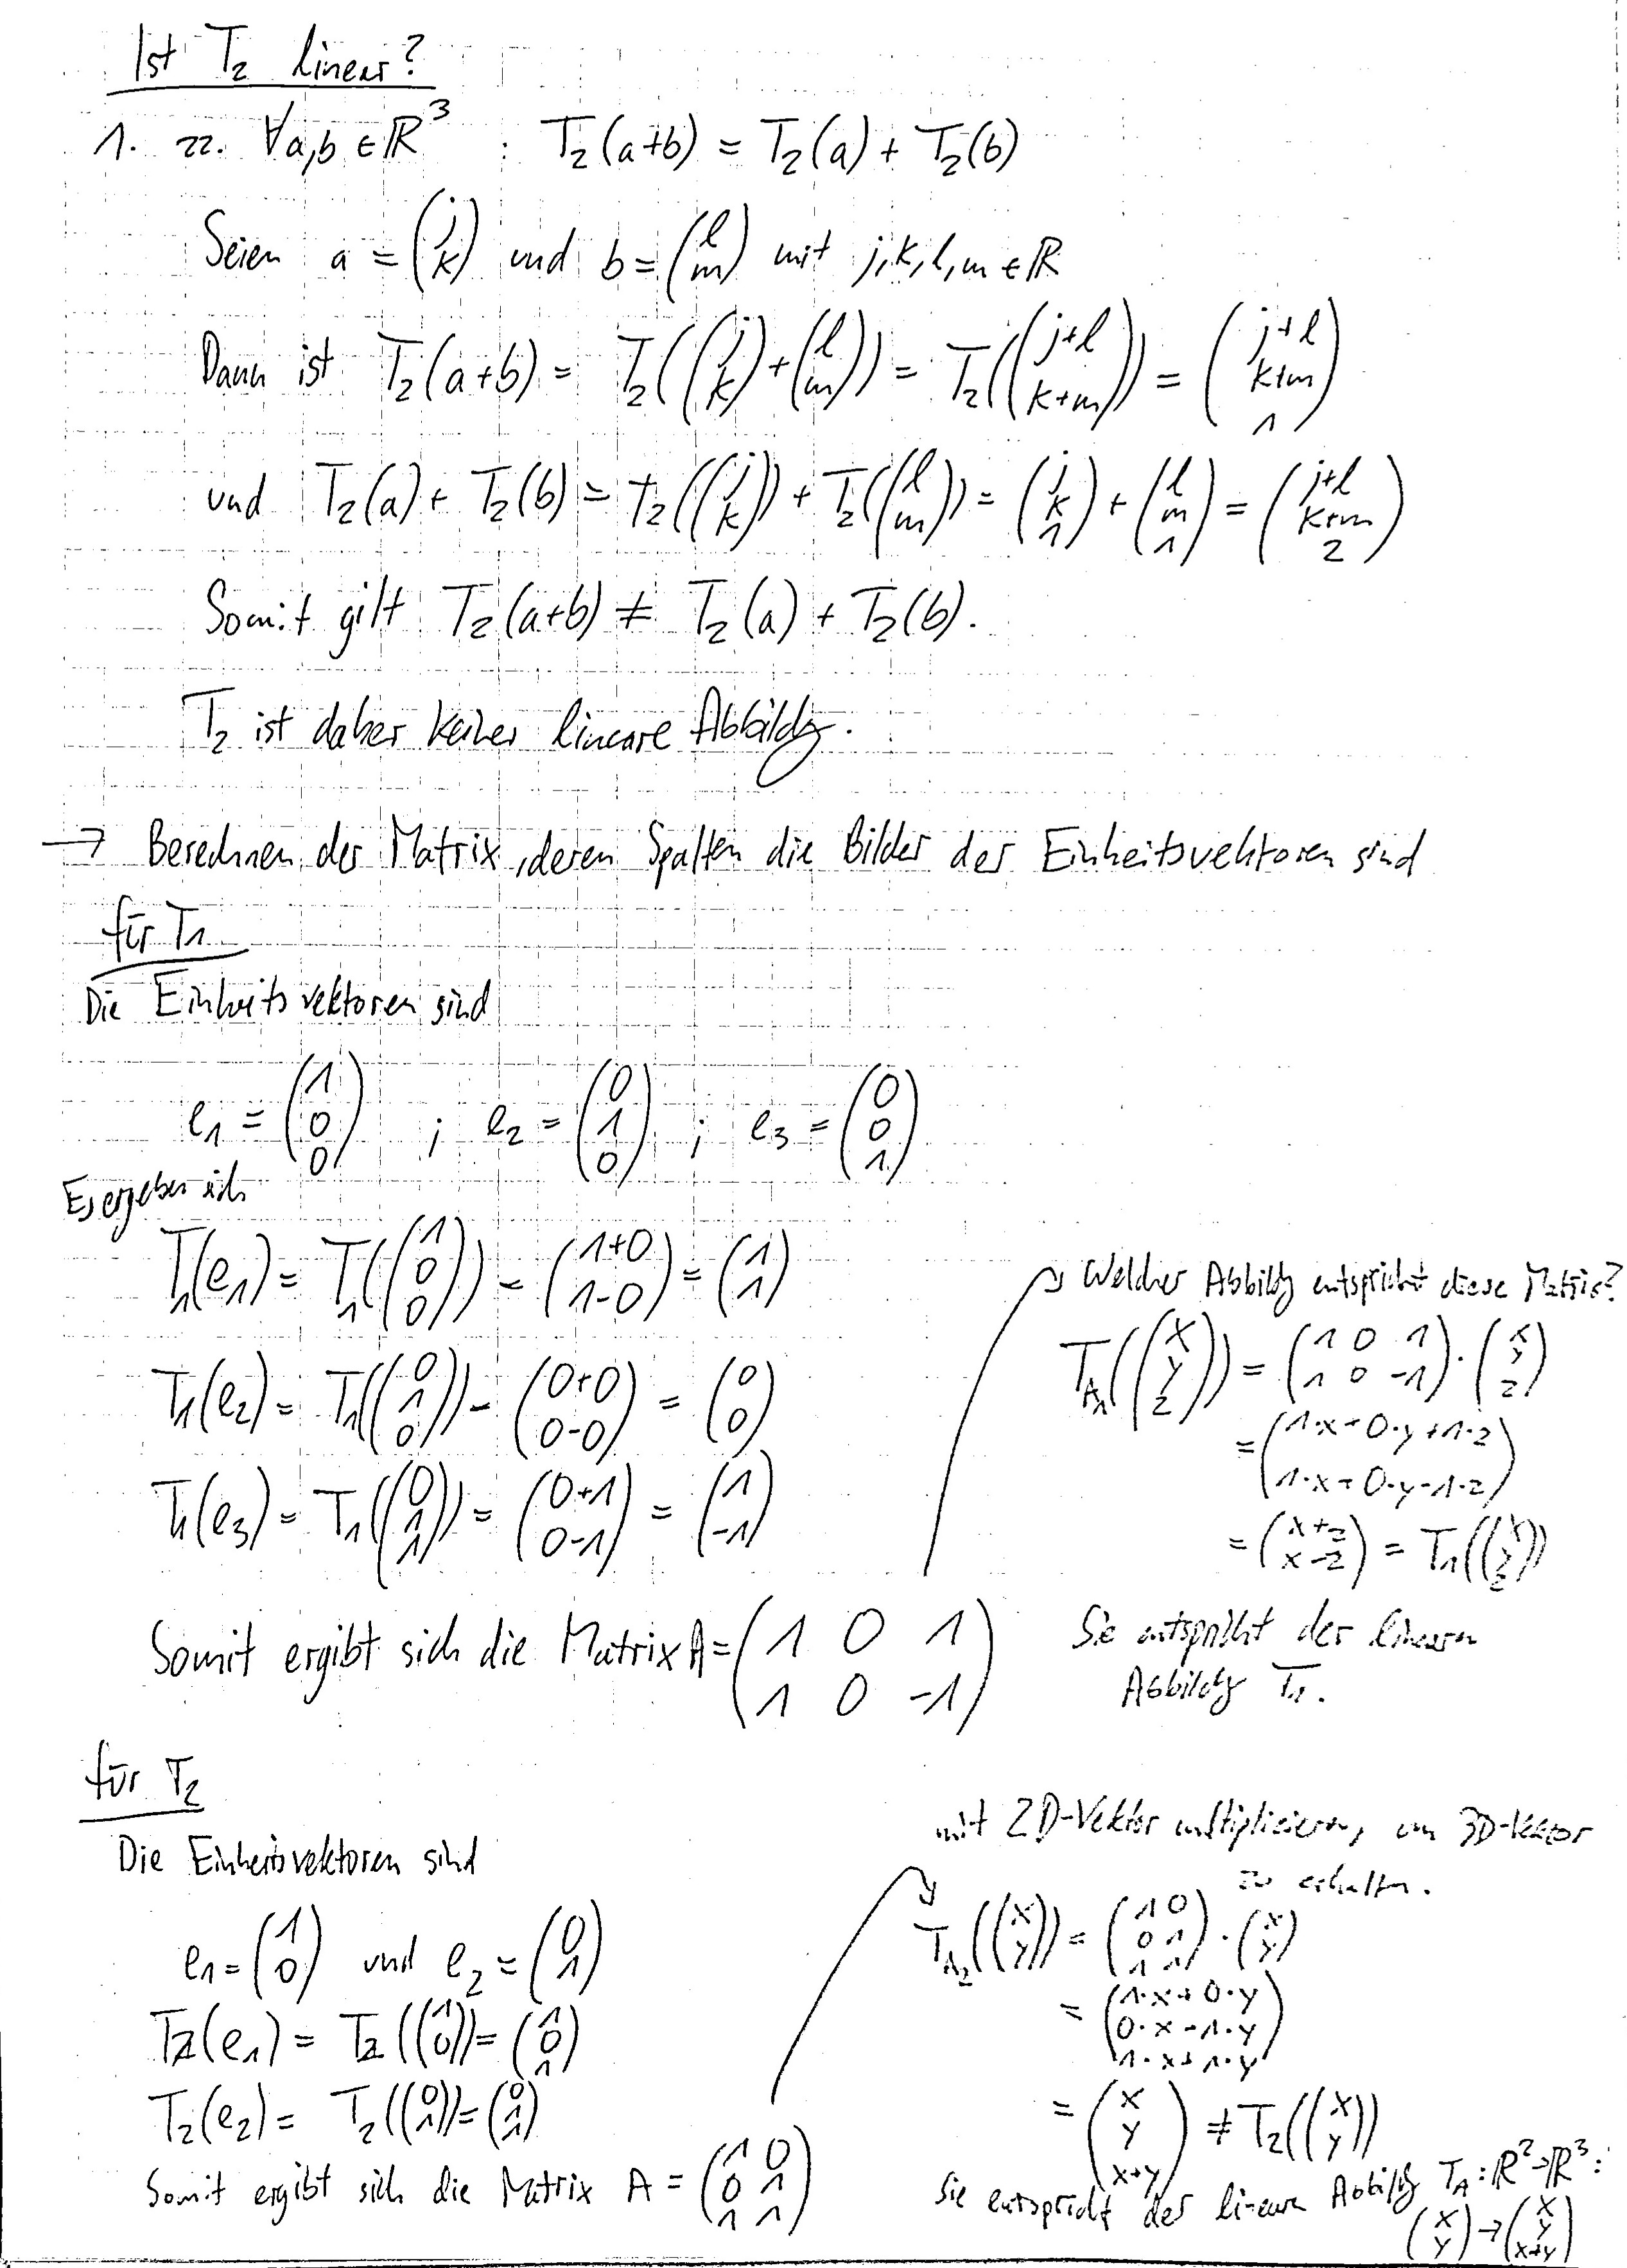 Ist T₂ linear?
1. zz. ∀a,b ∈ ℝ³ : T₂(a+b) = T₂(a) + T₂(b)
Seien a = (j k) und b = (l m) mit j,k,l,m ∈ ℝ
Dann ist T₂(a+b) = T₂((j k) + (l m)) = T₂((j+l k+m)) = (j+l k+m 1)
und T₂(a) + T₂(b) = T₂((j k)) + T₂((l m)) = (j k 1) + (l m 1) = (j+l k+m 2)
Somit gilt T₂(a+b) ≠ T₂(a) + T₂(b).
T₂ ist daher keiner lineare Abbildg.
→ Berechnen der Matrix, deren Spalten die Bilder der Einheitsvektoren sind
für T₁
Die Einheitsvektoren sind
e₁ = (1 0 0) ; e₂ = (0 1 0) ; e₃ = (0 0 1)
Es ergeben sich
T₁(e₁) = T₁((1 0 0)) = (1+0 1-0) = (1 1)
T₁(e₂) = T₁((0 1 0)) = (0+0 0-0) = (0 0)
T₁(e₃) = T₁((0 1 1)) = (0+1 0-1) = (1 -1)
Somit ergibt sich die Matrix A = (1 0 1
1 0 -1)
Welcher Abbildg entspricht diese Matrix?
T_A₁((x y z)) = (1 0 1 1 0 -1) · (x y z)
= (1·x+0·y+1·z 1·x+0·y-1·z)
= (x+z x-z) = T₁((x y z))
Sie entspricht der linearen
Abbildg T₁.
für T₂
Die Einheitsvektoren sind
e₁ = (1 0) und e₂ = (0 1)
T₂(e₁) = T₂((1 0)) = (1 0 1)
T₂(e₂) = T₂((0 1)) = (0 1 1)
Somit ergibt sich die Matrix A = (1 0 0 1 1 1)
mit 2D-Vektor multiplizieren, um 3D-Vektor
zu erhalten.
T_A₂((x y)) = (1 0 0 1 1 1) · (x y)
= (1·x+0·y 0·x-1·y 1·x+1·y)
= (x y x+y) ≠ T₂((x y))
Sie entspricht der lineare Abbildg T_A : ℝ² → ℝ³ :
(x y) → (x y x+y)